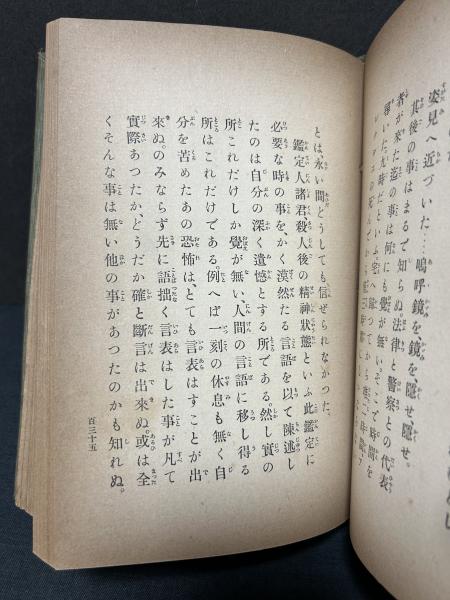 姿見へ近づいた…嗚呼、鏡を鏡を隱せ隱せ。
其後の事はまるで知らぬ法律と警察との代表
者が來た迄の事は何にも覺が無い。そこで時間を
とは永い間どうしても信ぜられなかつた。
鑑定人諸君殺人後の精神狀態といふ此鑑定に
必要な時の事を、かく漠然たる言語を以て陳述し
たのは自分の深く遺憾とする所である。然し實の
所これだけしか覺が無い、人間の言語に移し得る
所はこれだけである。例へば一刻の休息も無く自
分を苦めたあの恐怖は、とても言表はすことが出
來ぬ。のみならず先に語拙く言表はした事が凡て
實際あつたか、どうだか確と斷言は出來ぬ。或は全
くそんな事は無い他の事があつたのかも知れぬ。
百三十五